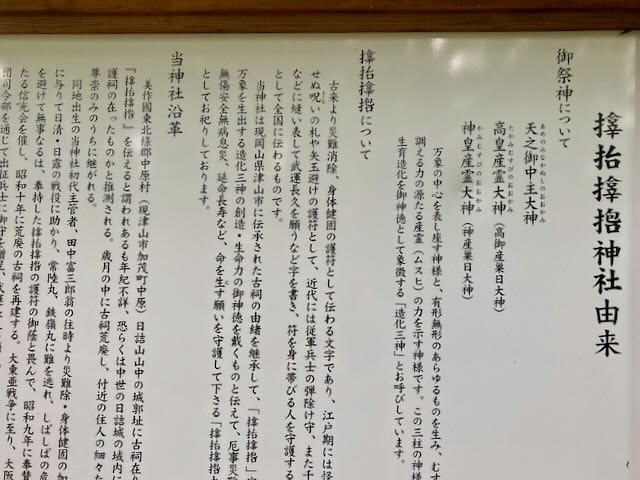 𪮷抬𪮷𪮇神社由来
御祭神について
あめのみなかぬしのおおかみ
天之御中主大神
たかみむすびのおおかみ
高皇産霊大神(高御産巣日大神)
かみむすびのおおかみ
神皇産霊大神(神産巣日大神)
万象の中心を表し座す神様と、有形無形のあらゆるものを生み、むす
調える力の源たる産霊(ムスヒ)の力を示す神様です。この三柱の神様
生育造化を御神徳として象徴する「造化三神」とお呼びしています。
𪮷抬𪮷𪮇について
古来より災難消除、身体健固の護符として伝わる文字であり、江戸期には怪
せぬ呪いの札や矢玉避けの護符として、近代には従軍兵士の弾除け守、また千
などに縫い表して武運長久を願うなど字を書き、符を身に帯びる人を守護する
として全国に伝わるものです。
当神社は現岡山県津山市に伝承された古祠の由緒を継承して、「𪮷抬𪮷𪮇」
万象を生出する造化三神の創造・生命力の御神徳を戴くものと伝えて、厄事災難
無傷安全無病息災、延命長寿など、命を生す願いを守護して下さる「𪮷抬𪮷𪮇
としてお祀りしております。
当神社沿革
美作國東北條郡中原村(現津山市加茂町中原)日詰山山中の城郭址に古祠在り
『𪮷抬𪮷𪮇』を伝えると謂われあるも年紀不詳、恐らくは中世の日詰城の域内に
護祠の在ったものかと推測される。歳月の中に古祠荒廃し、付近の住人の細々た
尊崇のみのうちに継がれる。
同地出生の当神社初代主管者、田中富三郎翁の往時より災難除・身体健固の加
に与りて日清・日露の戦役に助かり、常陸丸、鉄嶺丸に難を逃れ、しばしばの危
を避けて無事なるは、奉持した𪮷抬𪮷𪮇の護符の御蔭と畏んで、昭和九年に奉賛
たる信光会を催し、昭和十年に荒廃の古祠を再建する。大東亜戦争に至り、大阪
団司令部を通じて出征兵士に御守を贈呈、